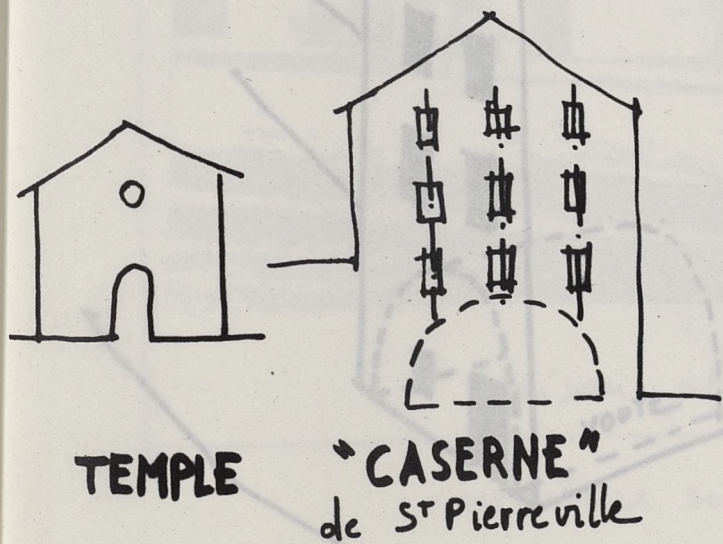 TEMPLE
"CASERNE"
de St Pierreville